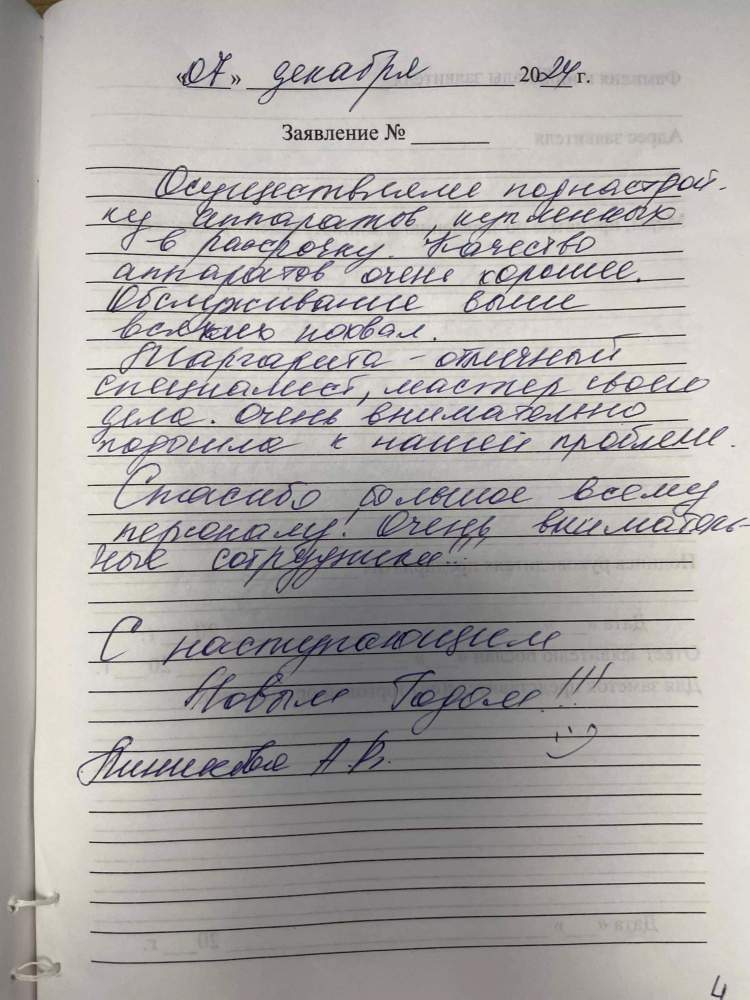 «07» декабря 2024 г.
Заявление №
Осуществляли поднастрой-
ку аппаратов, купленных
в рассрочку. Качество
аппаратов очень хорошее.
Обслуживание выше
всяких похвал.
Маргарита - отличный
специалист, мастер своего
дела. Очень внимательно
подошла к нашей проблеме.
Спасибо большое всему
персоналу! Очень вниматель-
ные сотрудники!!!
С наступающим
Новым Годом!!!
А.В.
4